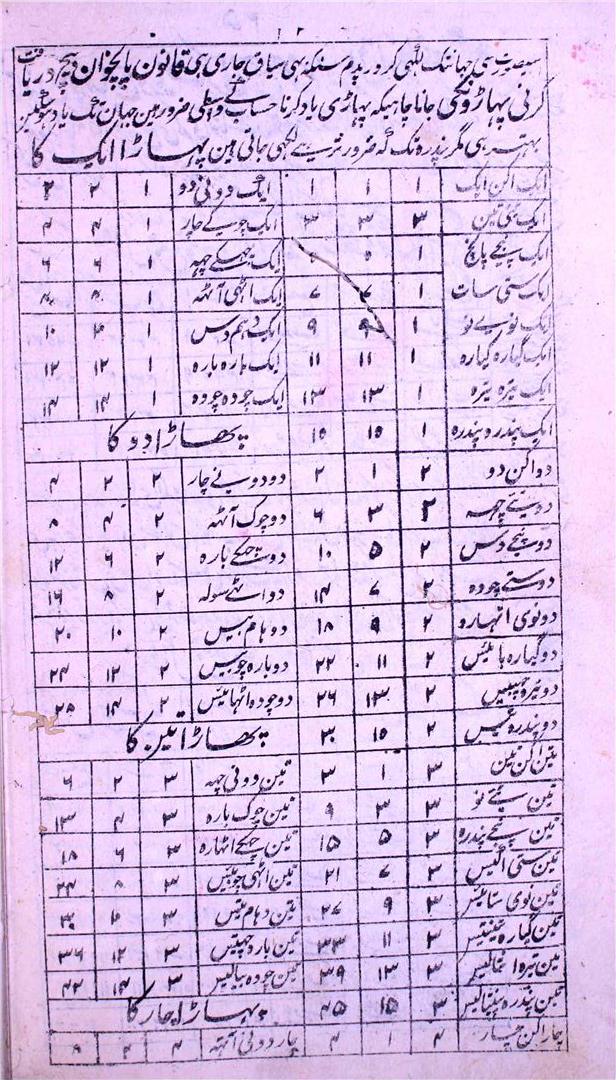 ۲
کرنی پہاڑونکی جانا چاہیکہ پہاڑی یاد کرنا حساب کے واسطی ضرور ہین جہان تک یاد
بہتر ہی مگر پندرہ تک کہ ضرور تر ہے لکہی جاتی ہین پہاڑا ایک کا
ایک اکن ایک ۱ ۱ ۱ ایک دونی دو ۱ ۲ ۲
ایک تین ۳ ۳ ایک چوکے چار ۱ ۴ ۴
ایک پنجے پانچ ۱ ۵ ایک چھکے چہہ ۱ ۶ ۶
ایک ستی سات ۱ ۷ ۷ ایک اٹہی آٹہہ ۱ ۸ ۸
ایک نوے نو ۱ ۹ ۹ ایک دہم دس ۱ ۱۰
ایک گیارہ گیارہ ۱ ۱۱ ۱۱ ایک بارہ بارہ ۱ ۱۲ ۱۲
ایک تیرہ تیرہ ۱ ۱۳ ۱۳ ایک چودہ چودہ ۱ ۱۴ ۱۴
ایک پندرہ پندرہ ۱ ۱۵ ۱۵ پہاڑا دو کا
دو اکن دو ۲ ۱ ۲ دو دونے چار ۲ ۲ ۴
دو تئے چہہ ۲ ۳ ۶ دو چوک آٹہہ ۲ ۴ ۸
دو پنجے دس ۲ ۵ ۱۰ دو چھکے بارہ ۲ ۶ ۱۲
دو ستے چودہ ۲ ۷ ۱۴ دو اٹہے سولہ ۲ ۸ ۱۶
دو نوی اٹہارہ ۲ ۹ ۱۸ دو دہام بیس ۲ ۱۰ ۲۰
دو گیارہ بائیس ۲ ۱۱ ۲۲ دو بارہ چوبیس ۲ ۱۲ ۲۴
دو تیرہ چہبیس ۲ ۱۳ ۲۶ دو چودہ اٹہائیس ۲ ۱۴ ۲۸
دو پندرہ تیس ۲ ۱۵ ۳۰ پہاڑا تین کا
تین اکن تین ۳ ۱ ۳ تین دونی چہہ ۳ ۲ ۶
تین تئے نو ۳ ۳ ۹ تین چوک بارہ ۳ ۴
تین پنجے پندرہ ۳ ۵ ۱۵ تین چھکے اٹہارہ ۳ ۶ ۱۸
تین ستی اکیس ۳ ۷ ۲۱ تین اٹہی چوبیس ۳ ۸ ۲۴
تین نوی ستائیس ۳ ۹ ۲۷ تین دہام تیس ۳ ۱۰ ۳۰
تین گیارہ تینتیس ۳ ۱۱ ۳۳ تین بارہ چہتیس ۳ ۱۲ ۳۶
تین تیرہ انتالیس ۳ ۱۳ ۳۹ تین چودہ بیالیس ۳ ۱۴ ۴۲
تین پندرہ پینتالیس ۳ ۱۵ ۴۵ پہاڑا چار کا
چار اکن چار ۴ ۱ ۴ چار دونی آٹہہ ۴ ۲ ۸